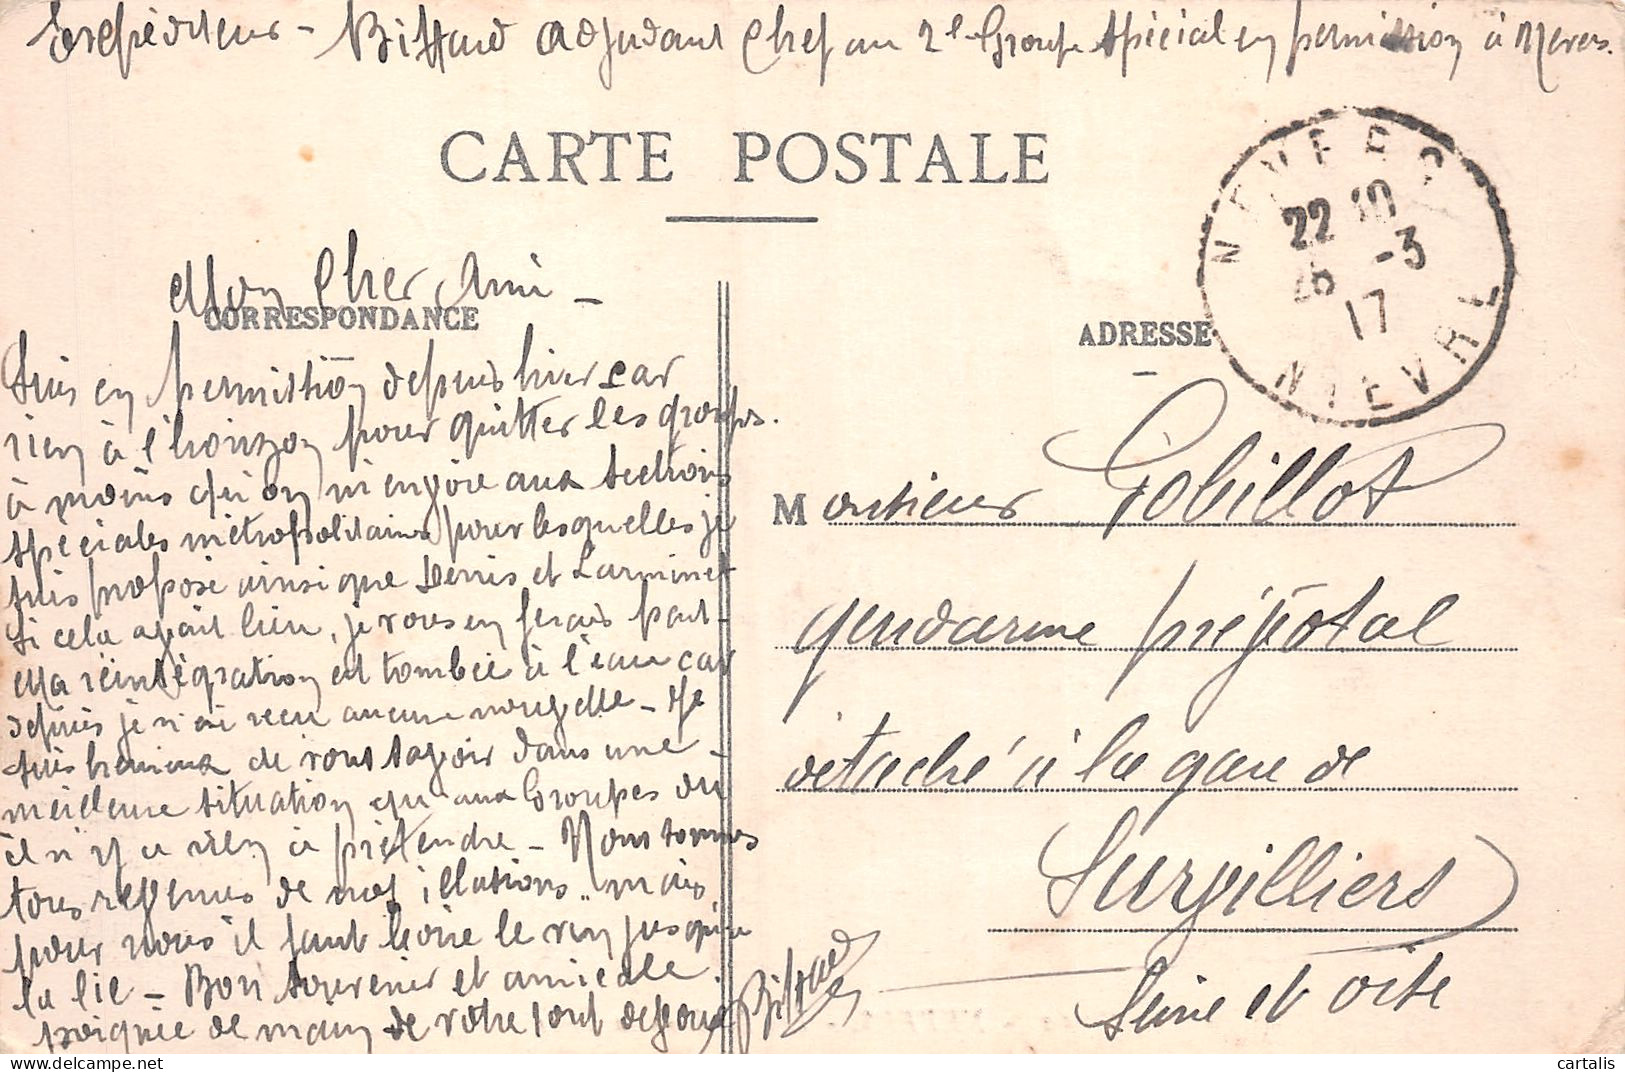 Expéditeur - Biffaud Adjudant Chef au 2e Groupe Spécial en permission à Nevers.
CARTE POSTALE
NEVERS
22 10
25 -3
17
NIEVRE
Mon Cher Ami -
CORRESPONDANCE
ADRESSE
Suis en permission depuis hier car
rien à l'horizon pour quitter les groupes.
à moins qu'on m'envoie aux sections
spéciales métropolitaines pour lesquelles je
suis proposé ainsi que Denis et Larminet
Si cela avait lieu, je vous en ferais part -
Ma réintégration est tombée à l'eau car
depuis je n'ai reçu aucune nouvelle - Je
suis heureux de vous savoir dans une
meilleure situation qu'aux Groupes ou
il n'y a rien à prétendre - Nous sommes
tous revenus de nos illusions .. mais
pour nous il faut boire le vin jusqu'à
la lie - Bon souvenir et amicale
poignée de main de votre tout dévoué
Biffaud
Monsieur Gobillot
gendarme prévotal
détaché à la gare de
Survilliers
Seine et Oise
cartalis